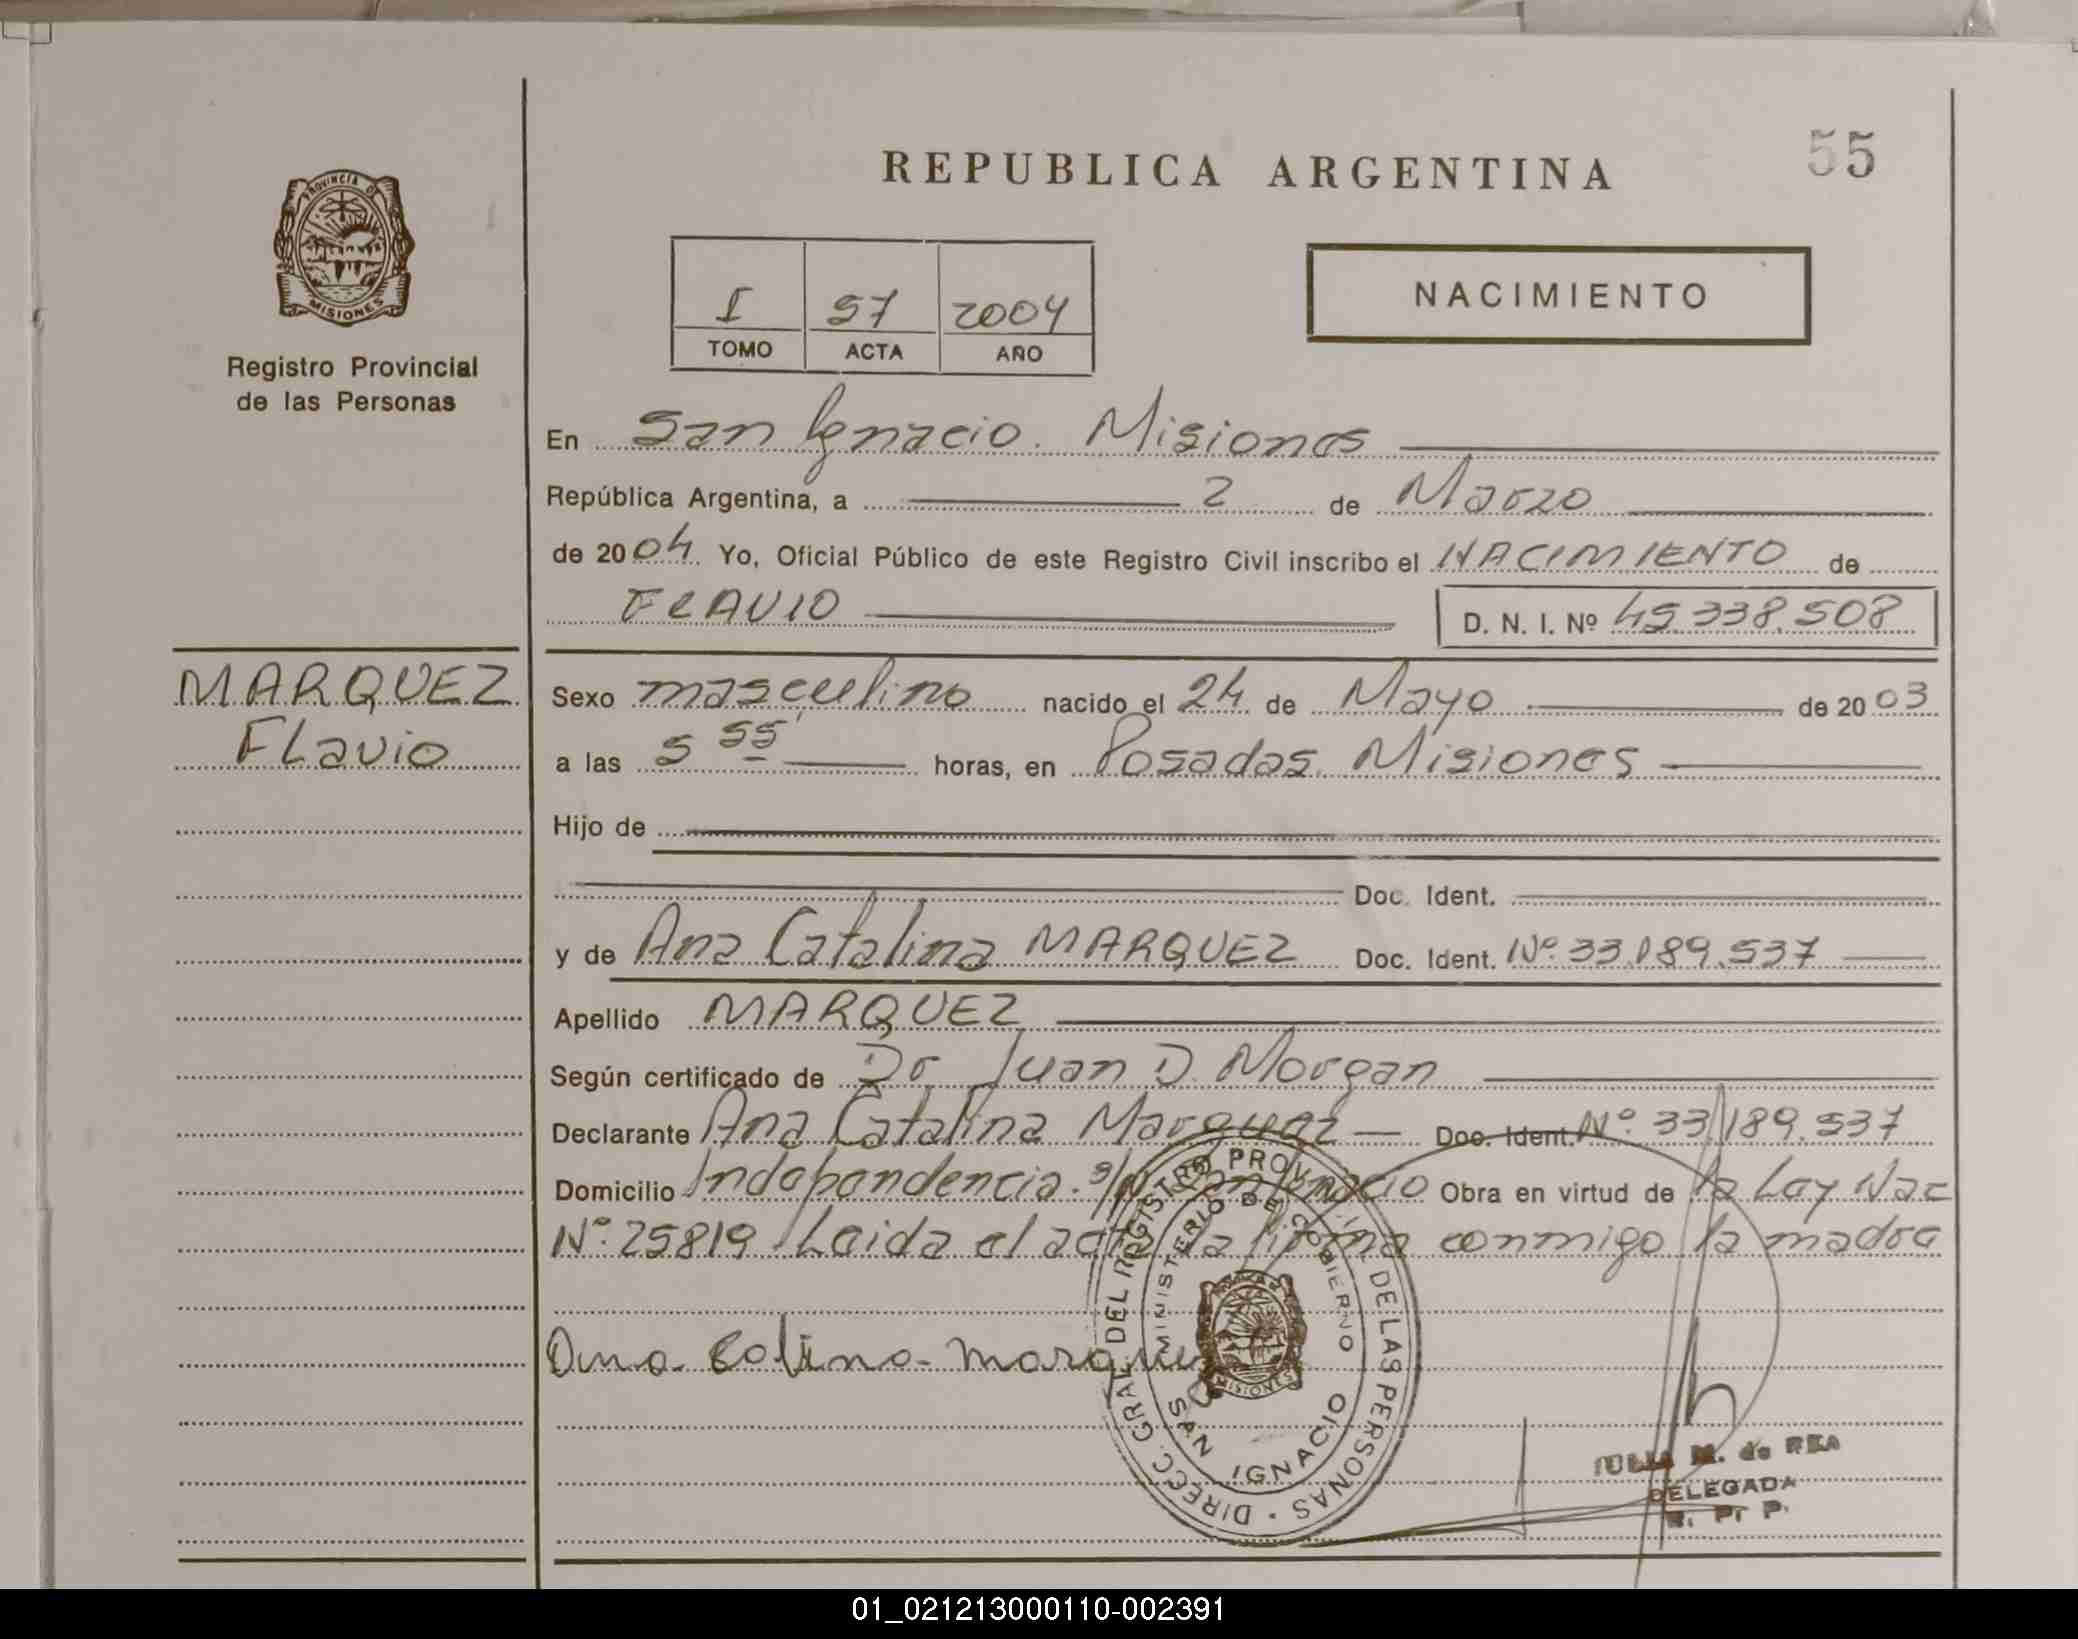 REPUBLICA ARGENTINA
55
PROVINCIA D
MISIONES
Registro Provincial
de las Personas
I 57 2004
TOMO ACTA AÑO
NACIMIENTO
En San Ignacio. Misiones
República Argentina, a 2 de Marzo
de 2004. Yo, Oficial Público de este Registro Civil inscribo el NACIMIENTO de
FLAVIO D. N. I. Nº 45.338.508
MARQUEZ
Flavio
Sexo masculino nacido el 24 de Mayo de 2003
a las 5 55' horas, en Posadas. Misiones
Hijo de
Doc. Ident.
y de Ana Catalina MARQUEZ Doc. Ident. Nº 33.189.537
Apellido MARQUEZ
Según certificado de Dr. Juan D. Morgan
Declarante Ana Catalina Marquez Doc. Ident. Nº 33.189.537
Domicilio Independencia. s/n San Ignacio Obra en virtud de la Ley Nac
Nº 25819 Leida el acta la firma conmigo la madre
DIRECC. GRAL. DEL REGISTRO PROVINCIAL DE LAS PERSONAS
MINISTERIO DE GOBIERNO
MISIONES
SAN IGNACIO
JULIA M. de REA
DELEGADA
R. P. P.
01_021213000110-002391